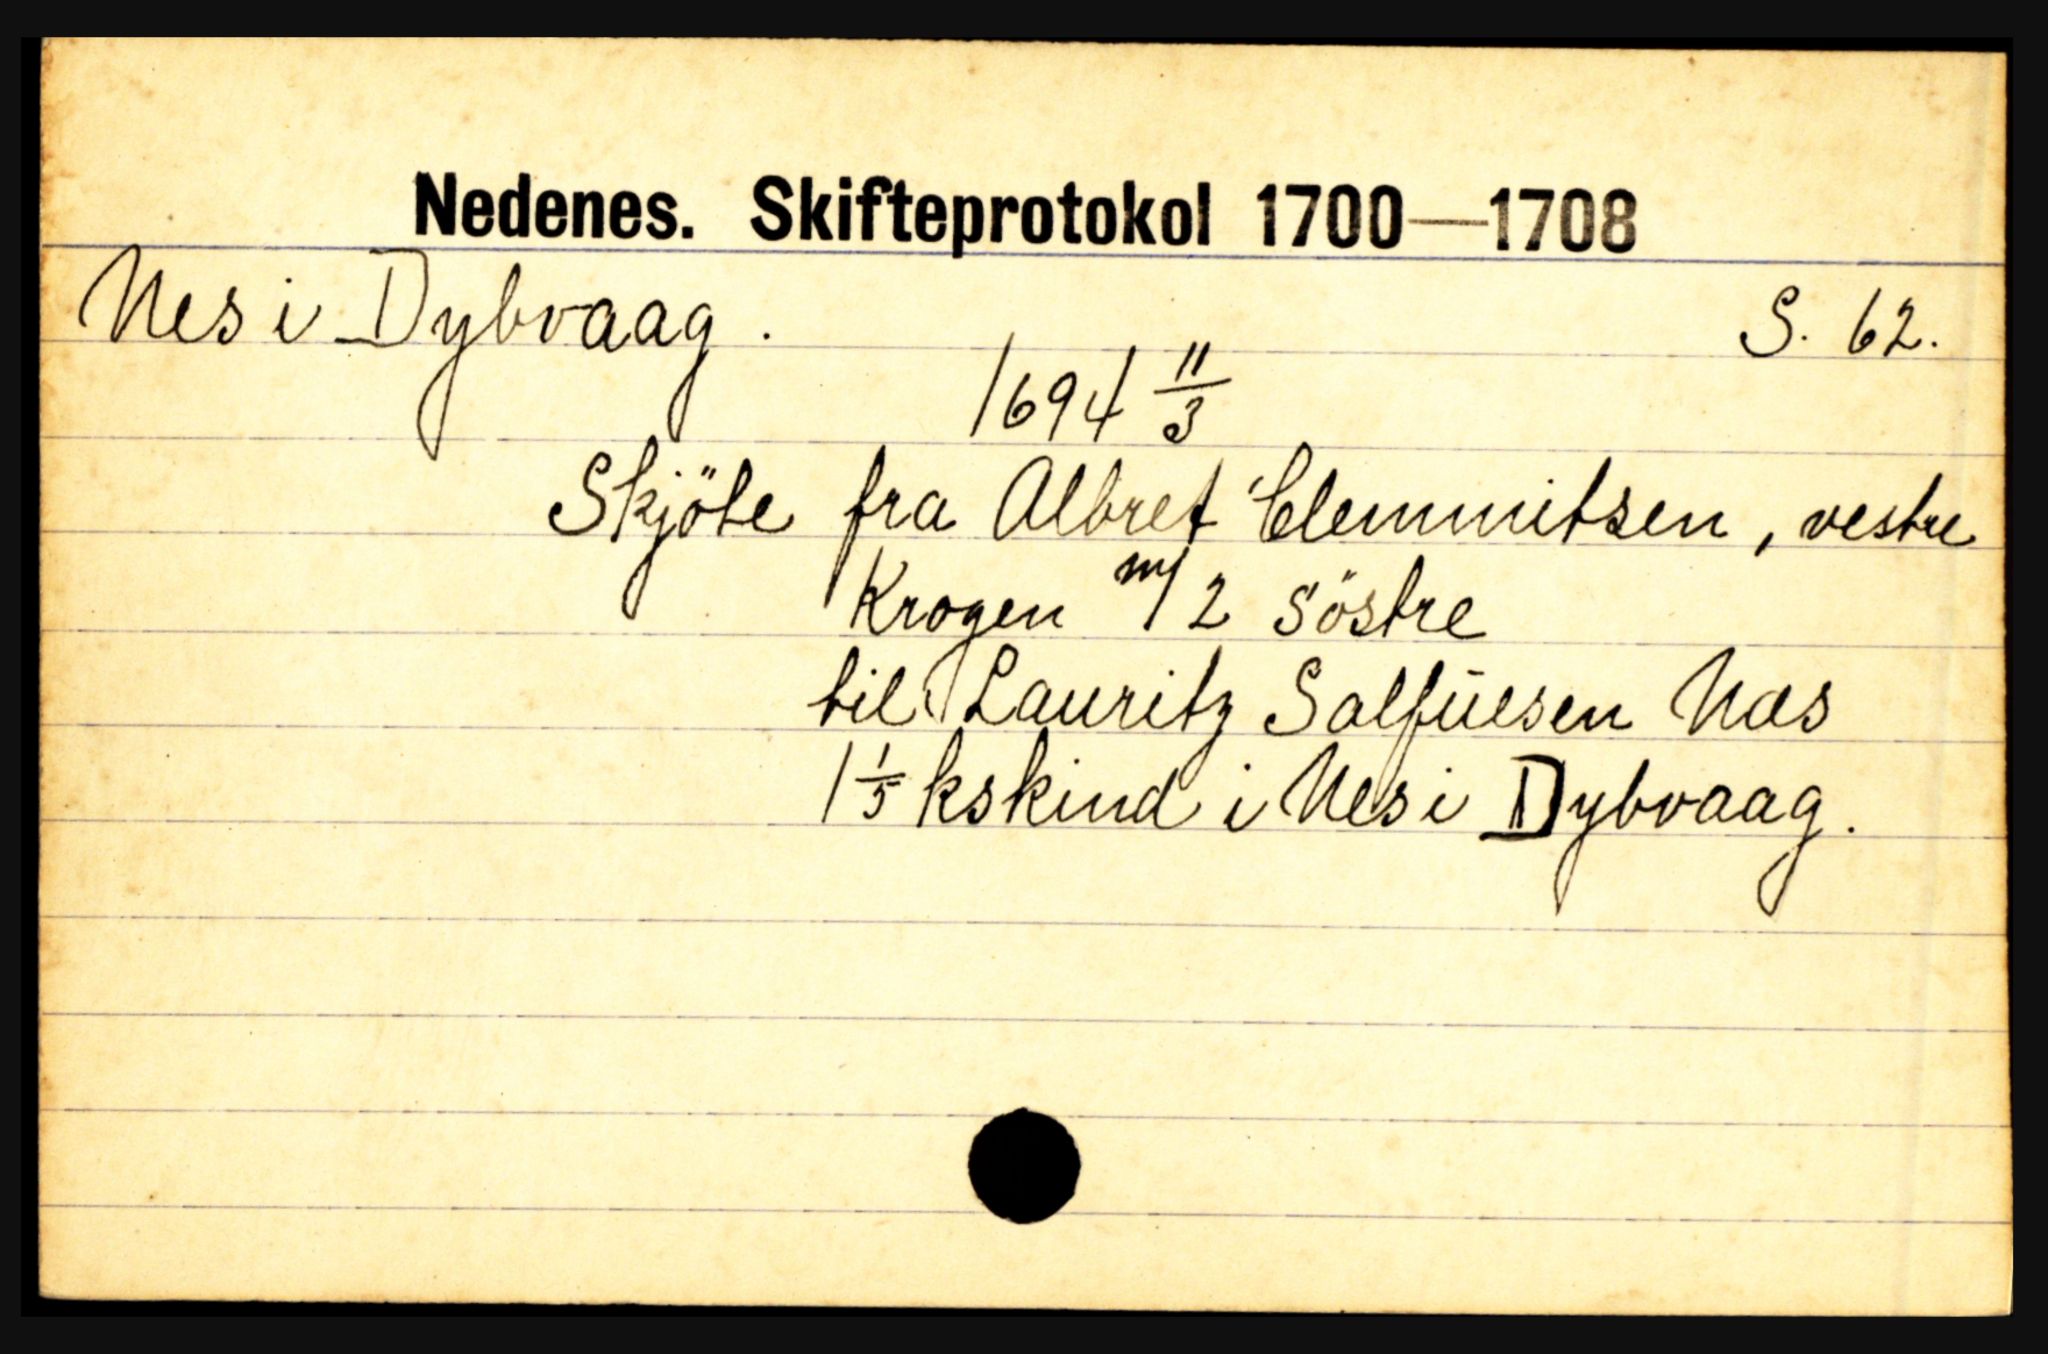 Nedenes. Skifteprotokol 1700—1708
Nes i Dybvaag. S. 62.
1694 11/3
Skjöte fra Albret Clemmitsen, vestre
Krogen m/ 2 söstre
til Lauritz Salfüesen Næs
1 1/5 kskind i Nes i Dybvaag.